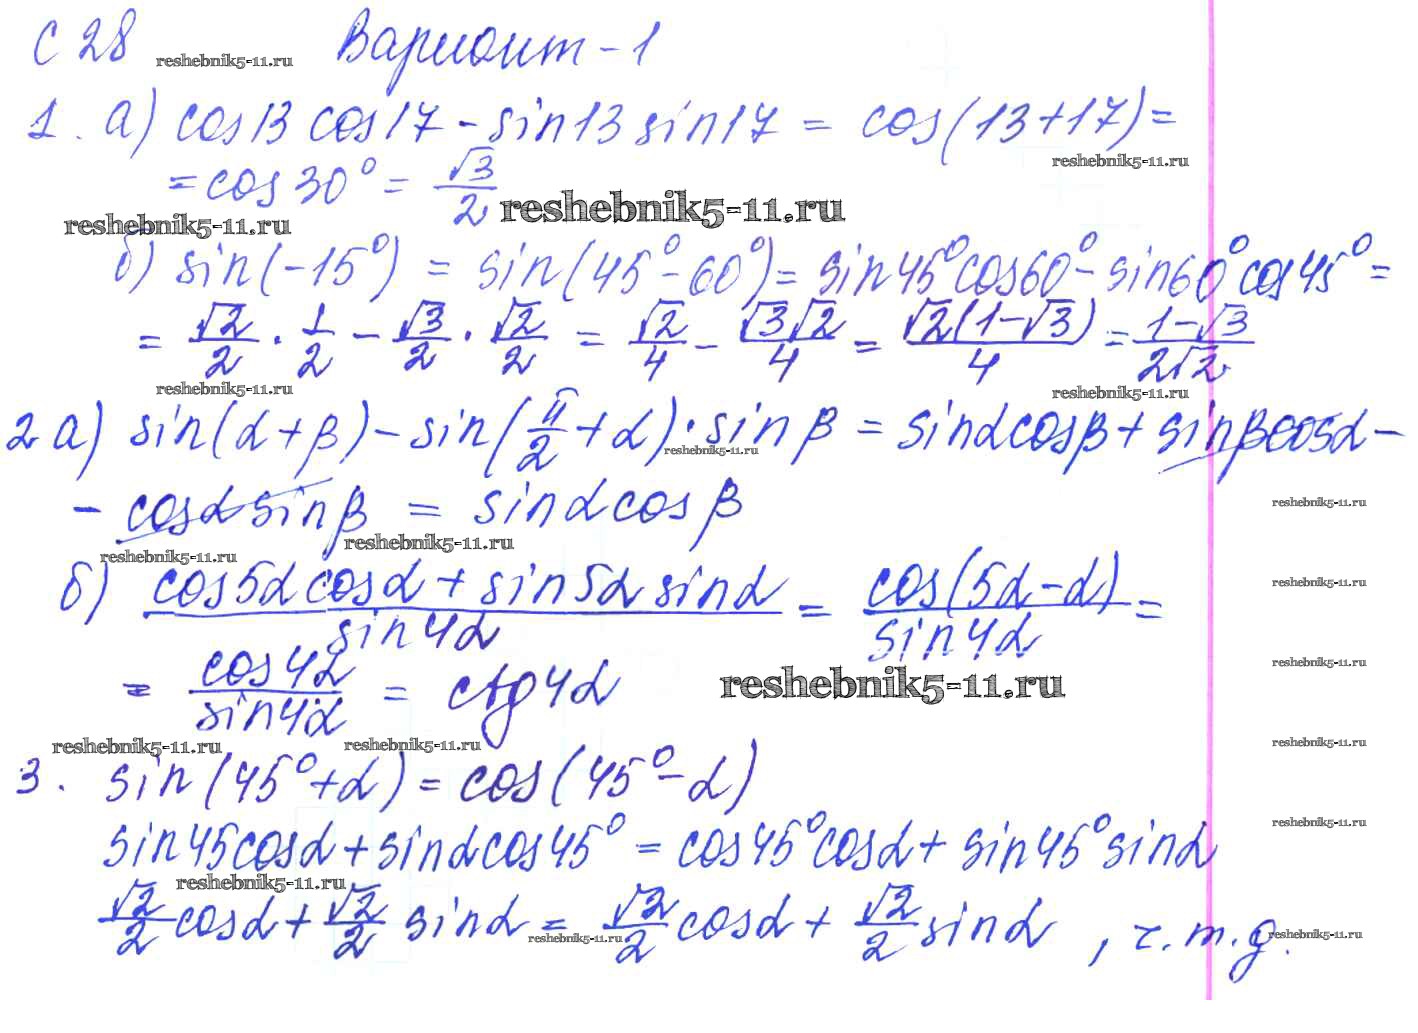 С 28 reshebnik5-11.ru Вариант - 1
1. а) cos13 cos17 - sin13 sin17 = cos(13+17) =
reshebnik5-11.ru
= cos 30° = √3/2
reshebnik5-11.ru reshebnik5-11.ru
б) sin(-15°) = sin(45°-60°) = sin45°cos60° - sin60°cos45° =
= √2/2 · 1/2 - √3/2 · √2/2 = √2/4 - √3√2/4 = √2(1-√3)/4 = 1-√3/2√2
reshebnik5-11.ru reshebnik5-11.ru
2 а) sin(α+β) - sin(π/2+α)·sinβ = sinαcosβ + sinβcosα -
reshebnik5-11.ru
- cosα sinβ = sinαcosβ
reshebnik5-11.ru
reshebnik5-11.ru reshebnik5-11.ru
б) cos5α cosα + sin5α sinα/sin4α = cos(5α-α)/sin4α =
reshebnik5-11.ru
= cos4α/sin4α = ctg4α
reshebnik5-11.ru reshebnik5-11.ru
reshebnik5-11.ru reshebnik5-11.ru reshebnik5-11.ru
3. sin(45°+α) = cos(45°-α)
reshebnik5-11.ru
sin45cosα + sinαcos45° = cos45°cosα + sin45°sinα
reshebnik5-11.ru
√2/2 cosα + √2/2 sinα = √2/2 cosα + √2/2 sinα , ч.т.д.
reshebnik5-11.ru reshebnik5-11.ru